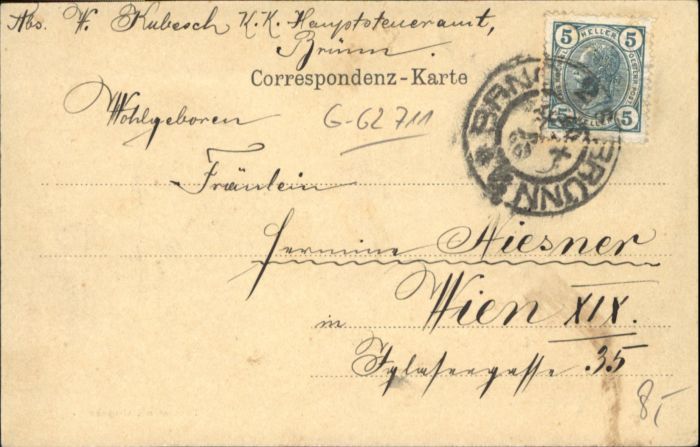 Abs. F. Kubesch K.K. Hauptsteueramt,
Brünn.
Correspondenz-Karte
5 HELLER 5
5 5
BRNO
BRÜNN
Wohlgeboren
G-62 711
Fräulein
Hermine Niesner
Wien XIX.
in
Iglasergasse 35
8,-